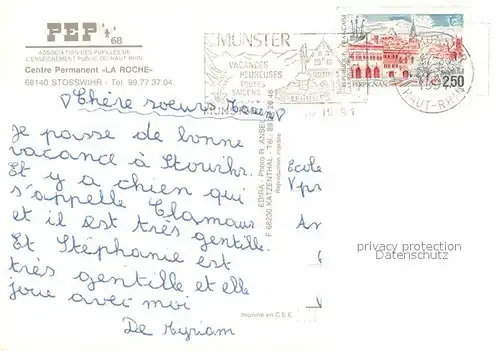 PEP 68
ASSOCIATION DES PUPILLES DE
L'ENSEIGNEMENT PUBLIC DU HAUT-RHIN
Centre Permanent «LA ROCHE»
68140 STOSSWIHR - Tel. 89.77.37.04.
MUNSTER
VACANCES
HEUREUSES
TOUTES
SAISONS
MUNSTER
RÉPUBLIQUE FRANÇAISE
PERPIGNAN
2,50
HAUT-RHIN
Chère soeurs
Je passe de bonne
vacance à Stowihr.
Et y a chien qui
s'appelle Clamaus
et il est très gentille.
Et Stéphanie est
très gentille et elle
joue avec moi
De Myriam
EDIRA - Photo R. ANSEL
F 68230 KATZENTHAL - Tel. 89
Reproduction interdite
Imprimé en C.E.E.
Ecole
An
privacy protection